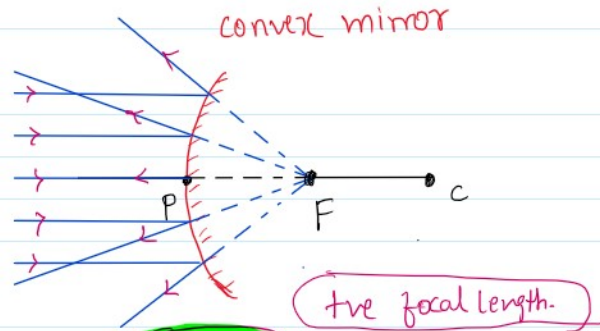 convex mirror
P
F
C
+ve focal length.